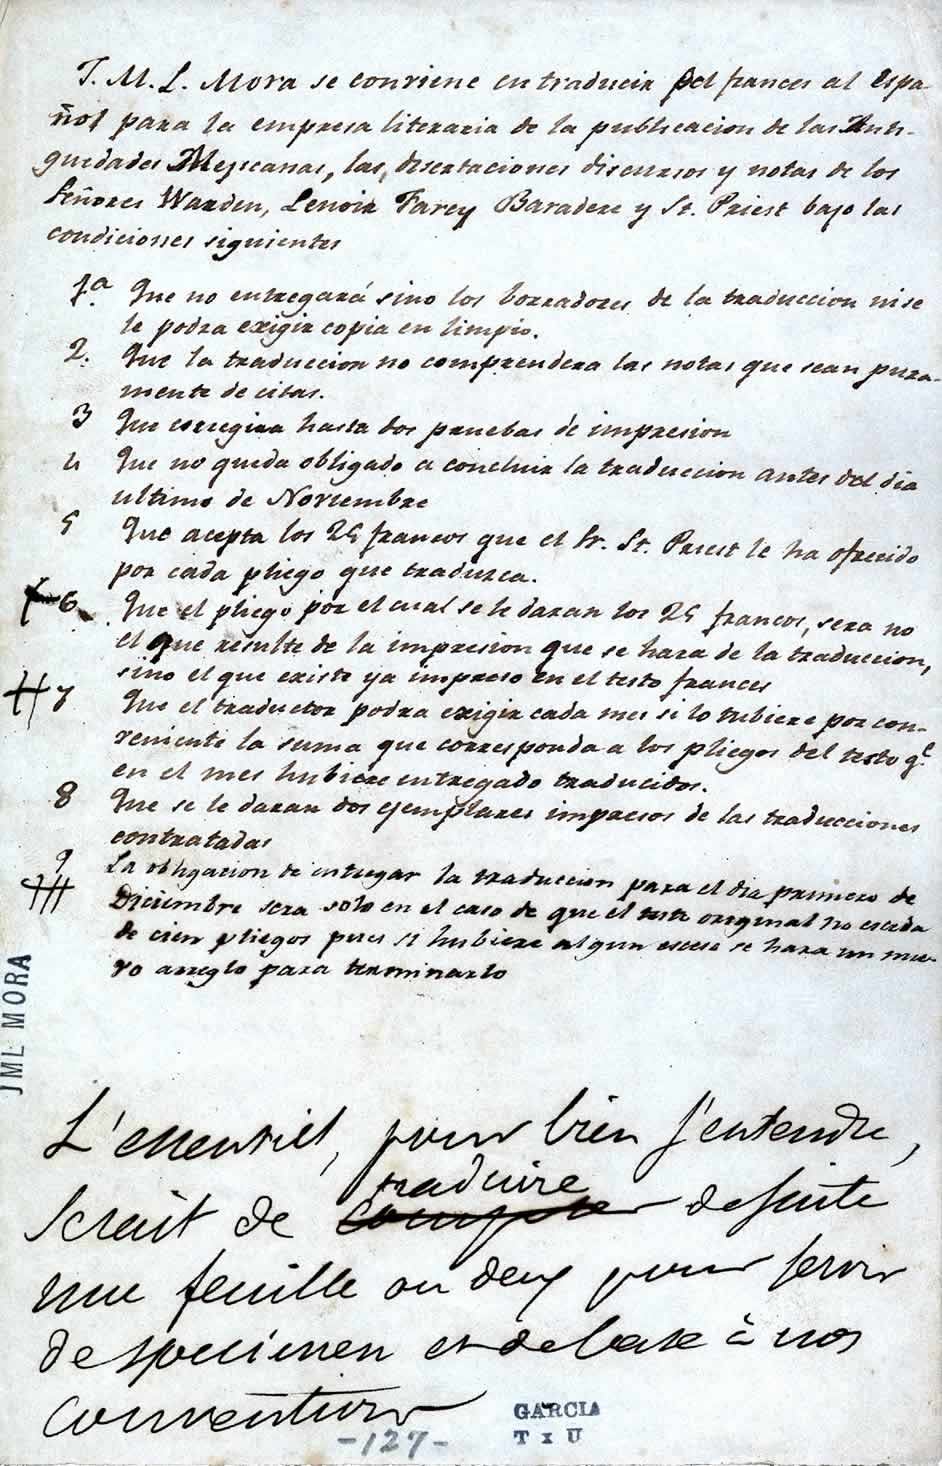 J. M. L. Mora se conviene en traducir del frances al Espa-
ñol para la empresa literaria de la publicacion de las Anti-
guedades Mejicanas, las disertaciones discursos y notas de los
Señores Warden, Lenoir Farcy Baradere y St. Priest bajo las
condiciones siguientes
1ª Que no entregará sino los borradores de la traduccion ni se
le podra exigir copia en limpio.
2. Que la traduccion no comprendera las notas que sean pura-
mente de citas.
3 Que corregira hasta dos pruebas de impresion
4 Que no queda obligado a concluir la traduccion antes del dia
ultimo de Noviembre
5 Que acepta los 25 francos que el Sr. St. Priest le ha ofrecido
por cada pliego que traduzca.
6. Que el pliego por el cual se le daran los 25 francos, sera no
el que resulte de la impresion que se hara de la traduccion,
sino el que existe ya impreso en el testo frances
7 Que el traductor podra exigir cada mes si lo tubiere por con-
veniente la suma que corresponda a los pliegos del testo qe
en el mes hubiere entregado traducidos.
8 Que se le daran dos ejemplares impresos de las traducciones
contratadas
9 La obligacion de entregar la traduccion para el dia primero de
Diciembre sera solo en el caso de que el testo original no esceda
de cien pliegos pues si hubiere algun esceso se hara un nue-
vo arreglo para terminarlo
JML MORA
L'essentiel, pour bien s'entendre,
serait de traduire de suite
une feuille ou deux pour servir
de specimen et de base à nos
conventions
-127-
GARCIA
T x U